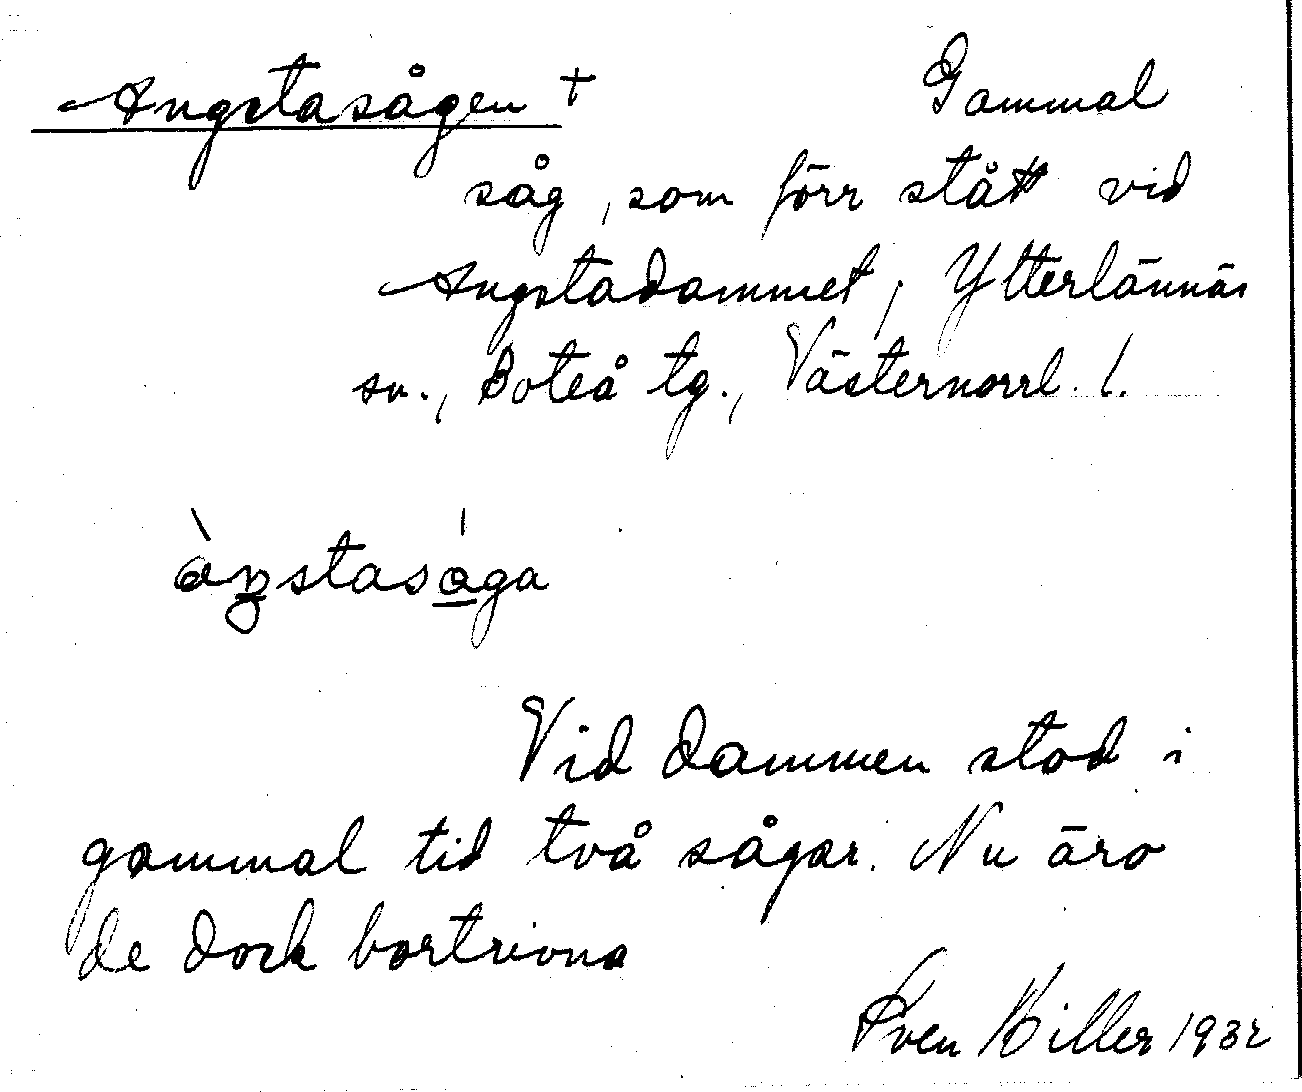 Angstasågen +
Gammal
såg, som förr stått vid
Angstadammet, Ytterlännäs
sn., Boteå tg., Västernorrl. l.
Vid dammen stod i
gammal tid två sågar. Nu äro
de dock bortrivna
Sven Hiller 1932